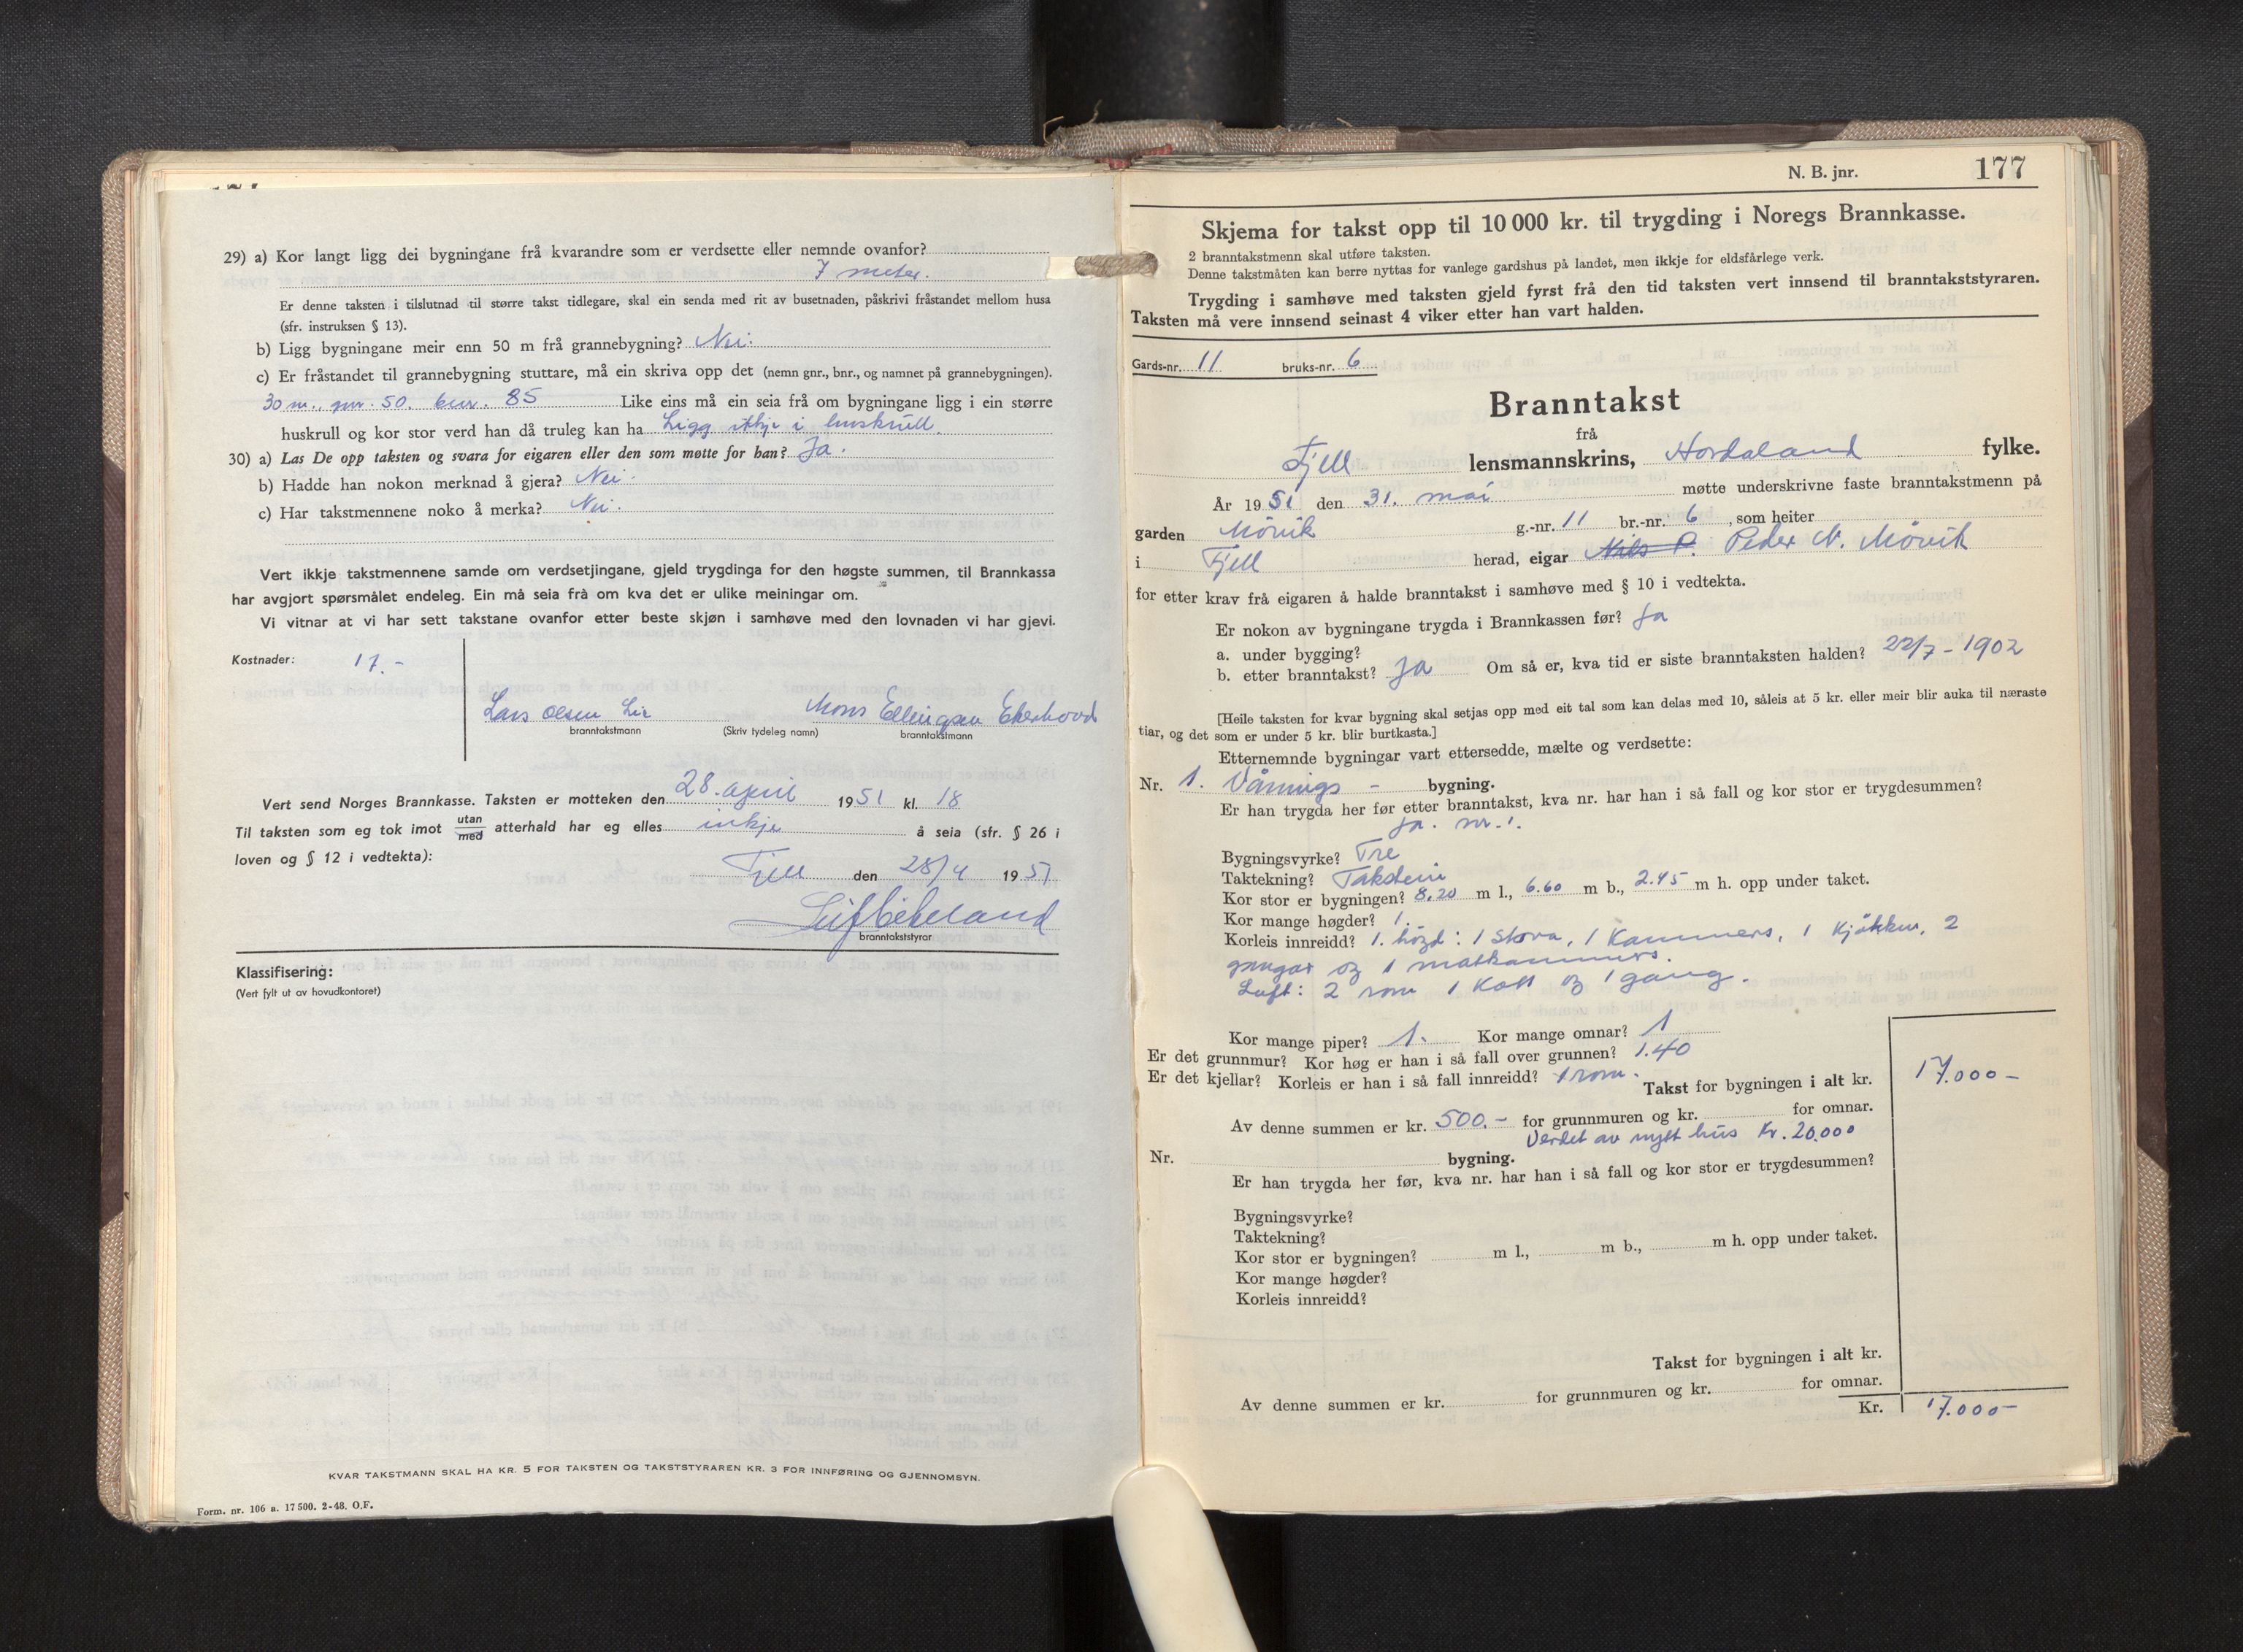 29) a) Kor langt ligg dei bygningane frå kvarandre som er verdsette eller nemnde ovanfor?
7 meter.
Er denne taksten i tilslutnad til større takst tidlegare, skal ein senda med rit av busetnaden, påskrivi fråstandet mellom husa
(sfr. instruksen § 13).
b) Ligg bygningane meir enn 50 m frå grannebygning? Nei.
c) Er fråstandet til grannebygning stuttare, må ein skriva opp det (nemn gnr., bnr., og namnet på grannebygningen).
30 m., gnr. 50. bnr. 85 Like eins må ein seia frå om bygningane ligg i ein større
huskrull og kor stor verd han då truleg kan ha Ligg ikkje i huskrull.
30) a) Las De opp taksten og svara for eigaren eller den som møtte for han? Ja.
b) Hadde han nokon merknad å gjera? Nei.
c) Har takstmennene noko å merka? Nei.
Vert ikkje takstmennene samde om verdsetjingane, gjeld trygdinga for den høgste summen, til Brannkassa
har avgjort spørsmålet endeleg. Ein må seia frå om kva det er ulike meiningar om.
Vi vitnar at vi har sett takstane ovanfor etter beste skjøn i samhøve med den lovnaden vi har gjevi.
Kostnader: 17.-
Lars Olsen Lie Mons Ellingsen Ekerhovd
branntakstmann (Skriv tydeleg namn) branntakstmann
Vert send Norges Brannkasse. Taksten er motteken den 28. april 1951 kl. 18
Til taksten som eg tok imot utan/med atterhald har eg elles inkje å seia (sfr. § 26 i
loven og § 12 i vedtekta):
Fjell den 28/4 1951
branntakststyrar
Klassifisering:
(Vert fylt ut av hovudkontoret)
KVAR TAKSTMANN SKAL HA KR. 5 FOR TAKSTEN OG TAKSTSTYRAREN KR. 3 FOR INNFØRING OG GJENNOMSYN.
Form. nr. 106 a. 17 500. 2-48. O.F.
N. B. jnr. 177
Skjema for takst opp til 10 000 kr. til trygding i Noregs Brannkasse.
2 branntakstmenn skal utføre taksten.
Denne takstmåten kan berre nyttas for vanlege gardshus på landet, men ikkje for eldsfårlege verk.
Trygding i samhøve med taksten gjeld fyrst frå den tid taksten vert innsend til branntakststyraren.
Taksten må vere innsend seinast 4 viker etter han vart halden.
Gards-nr. 11 bruks-nr. 6
Branntakst
frå
Fjell lensmannskrins, Hordaland fylke.
År 1951 den 31. mai møtte underskrivne faste branntakstmenn på
garden Mörvik g.-nr. 11 br.-nr. 6, som heiter
i Fjell herad, eigar Nils P. Peder N. Mörvik
for etter krav frå eigaren å halde branntakst i samhøve med § 10 i vedtekta.
Er nokon av bygningane trygda i Brannkassen før? Ja
a. under bygging?
b. etter branntakst? Ja Om så er, kva tid er siste branntaksten halden? 22/7-1902
[Heile taksten for kvar bygning skal setjas opp med eit tal som kan delas med 10, såleis at 5 kr. eller meir blir auka til næraste
tiar, og det som er under 5 kr. blir burtkasta.]
Etternemnde bygningar vart ettersedde, mælte og verdsette:
Nr. 1. Vånings - bygning.
Er han trygda her før etter branntakst, kva nr. har han i så fall og kor stor er trygdesummen?
Ja. nr. 1.
Bygningsvyrke? Tre
Taktekning? Takstein
Kor stor er bygningen? 8.20 m l., 6.60 m b., 2.45 m h. opp under taket.
Kor mange høgder? 1.
Korleis innreidd? 1. högd: 1 stova, 1 kammers, 1 kjökken, 2
gangar og 1 matkammers.
Luft: 2 rom 1 kott og 1 gang.
Kor mange piper? 1. Kor mange omnar? 1
Er det grunnmur? Kor høg er han i så fall over grunnen? 1.40
Er det kjellar? Korleis er han i så fall innreidd? 1 rom.
Takst for bygningen i alt kr. 17.000-
Av denne summen er kr. 500.- for grunnmuren og kr. for omnar.
Verdet av nytt hus Kr. 20.000
Nr. bygning.
Er han trygda her før, kva nr. har han i så fall og kor stor er trygdesummen?
Bygningsvyrke?
Taktekning?
Kor stor er bygningen? m l., m b., m h. opp under taket.
Kor mange høgder?
Korleis innreidd?
Takst for bygningen i alt kr.
Av denne summen er kr. for grunnmuren og kr. for omnar.
Kr. 17.000-